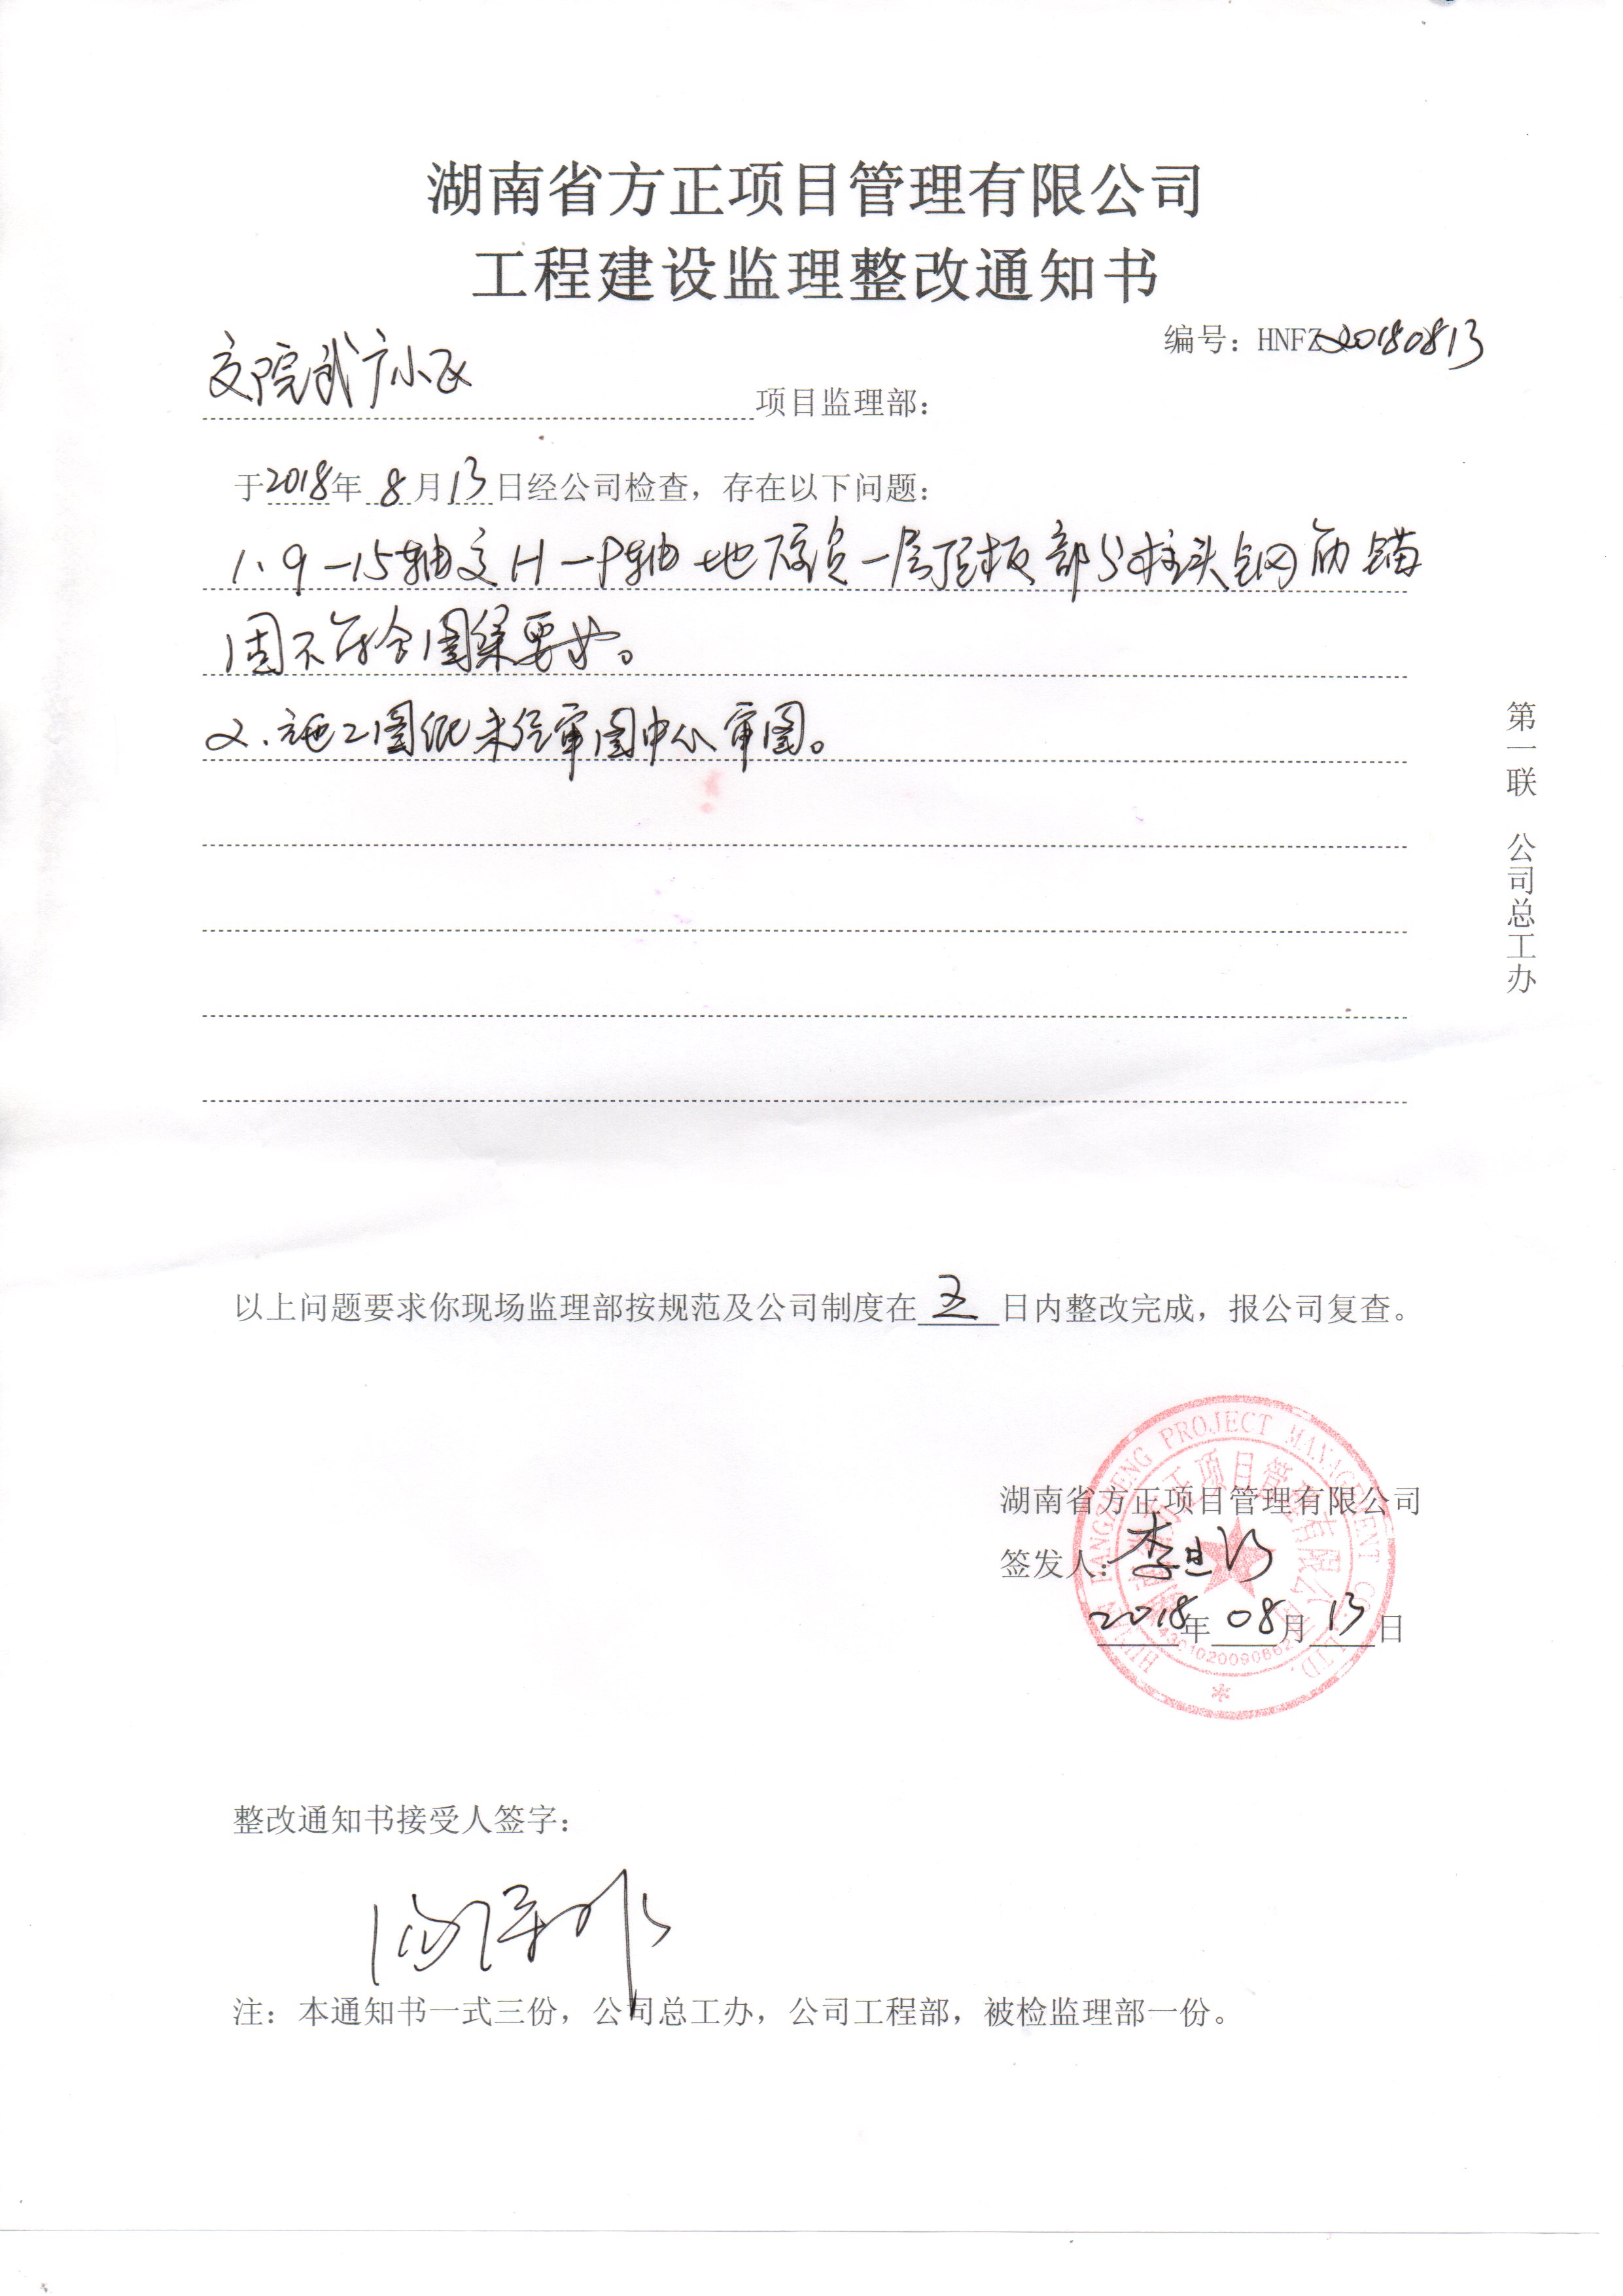 湖南省方正项目管理有限公司
工程建设监理整改通知书
编号：HNFZ20180813
交院武广小区项目监理部：
于2018年8月13日经公司检查，存在以下问题：
1、9－15轴交H－P轴地下室负一层顶板部分柱头钢筋锚
固不符合图集要求。
2、施工图纸未经审图中心审图。
第一联 公司总工办
以上问题要求你现场监理部按规范及公司制度在五日内整改完成，报公司复查。
湖南省方正项目管理有限公司
签发人：李
2018年08月13日
HUNAN FANGZHENG PROJECT MANAGEMENT CO. LTD.
湖南省方正项目管理有限公司
整改通知书接受人签字：
注：本通知书一式三份，公司总工办，公司工程部，被检监理部一份。